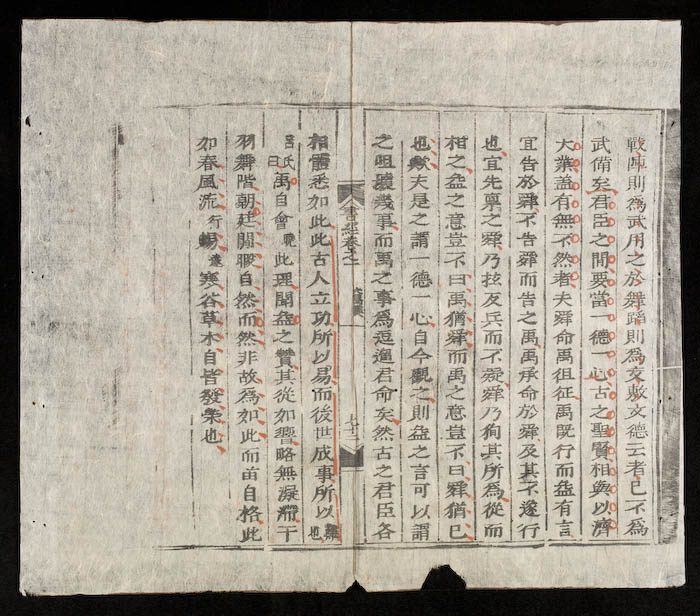 戰陣則為武用之於舞蹈則為文敷文德云者已不為
武備矣君臣之間要當一德一心古之聖賢相與以濟
大業盖有無不然者夫舜命禹徂征禹既行而益有言
宜告於舜不告舜而告之禹禹承命於舜及其不遂行
也宜先稟之舜乃反兵而不凝舜乃徇其所為從而
相之益之意豈不曰禹猶舜而禹之意豈不曰舜猶已
也歟夫是之謂一德一心自今觀之則益之言可以謂
之阻壞幾事而禹之事為逗遛君命矣然古之君臣各
書經卷之一
七十二
相體悉如此此古人立功所以易而後世成事所以難也
呂氏曰禹自會曉此理聞益之贊其從如響略無凝滯干
羽舞階朝廷閒暇自然而然非故為如此而苗自格此
如春風流行暢達寒谷草木自皆發榮也